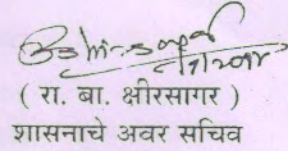 ( रा. बा. क्षीरसागर )
शासनाचे अवर सचिव